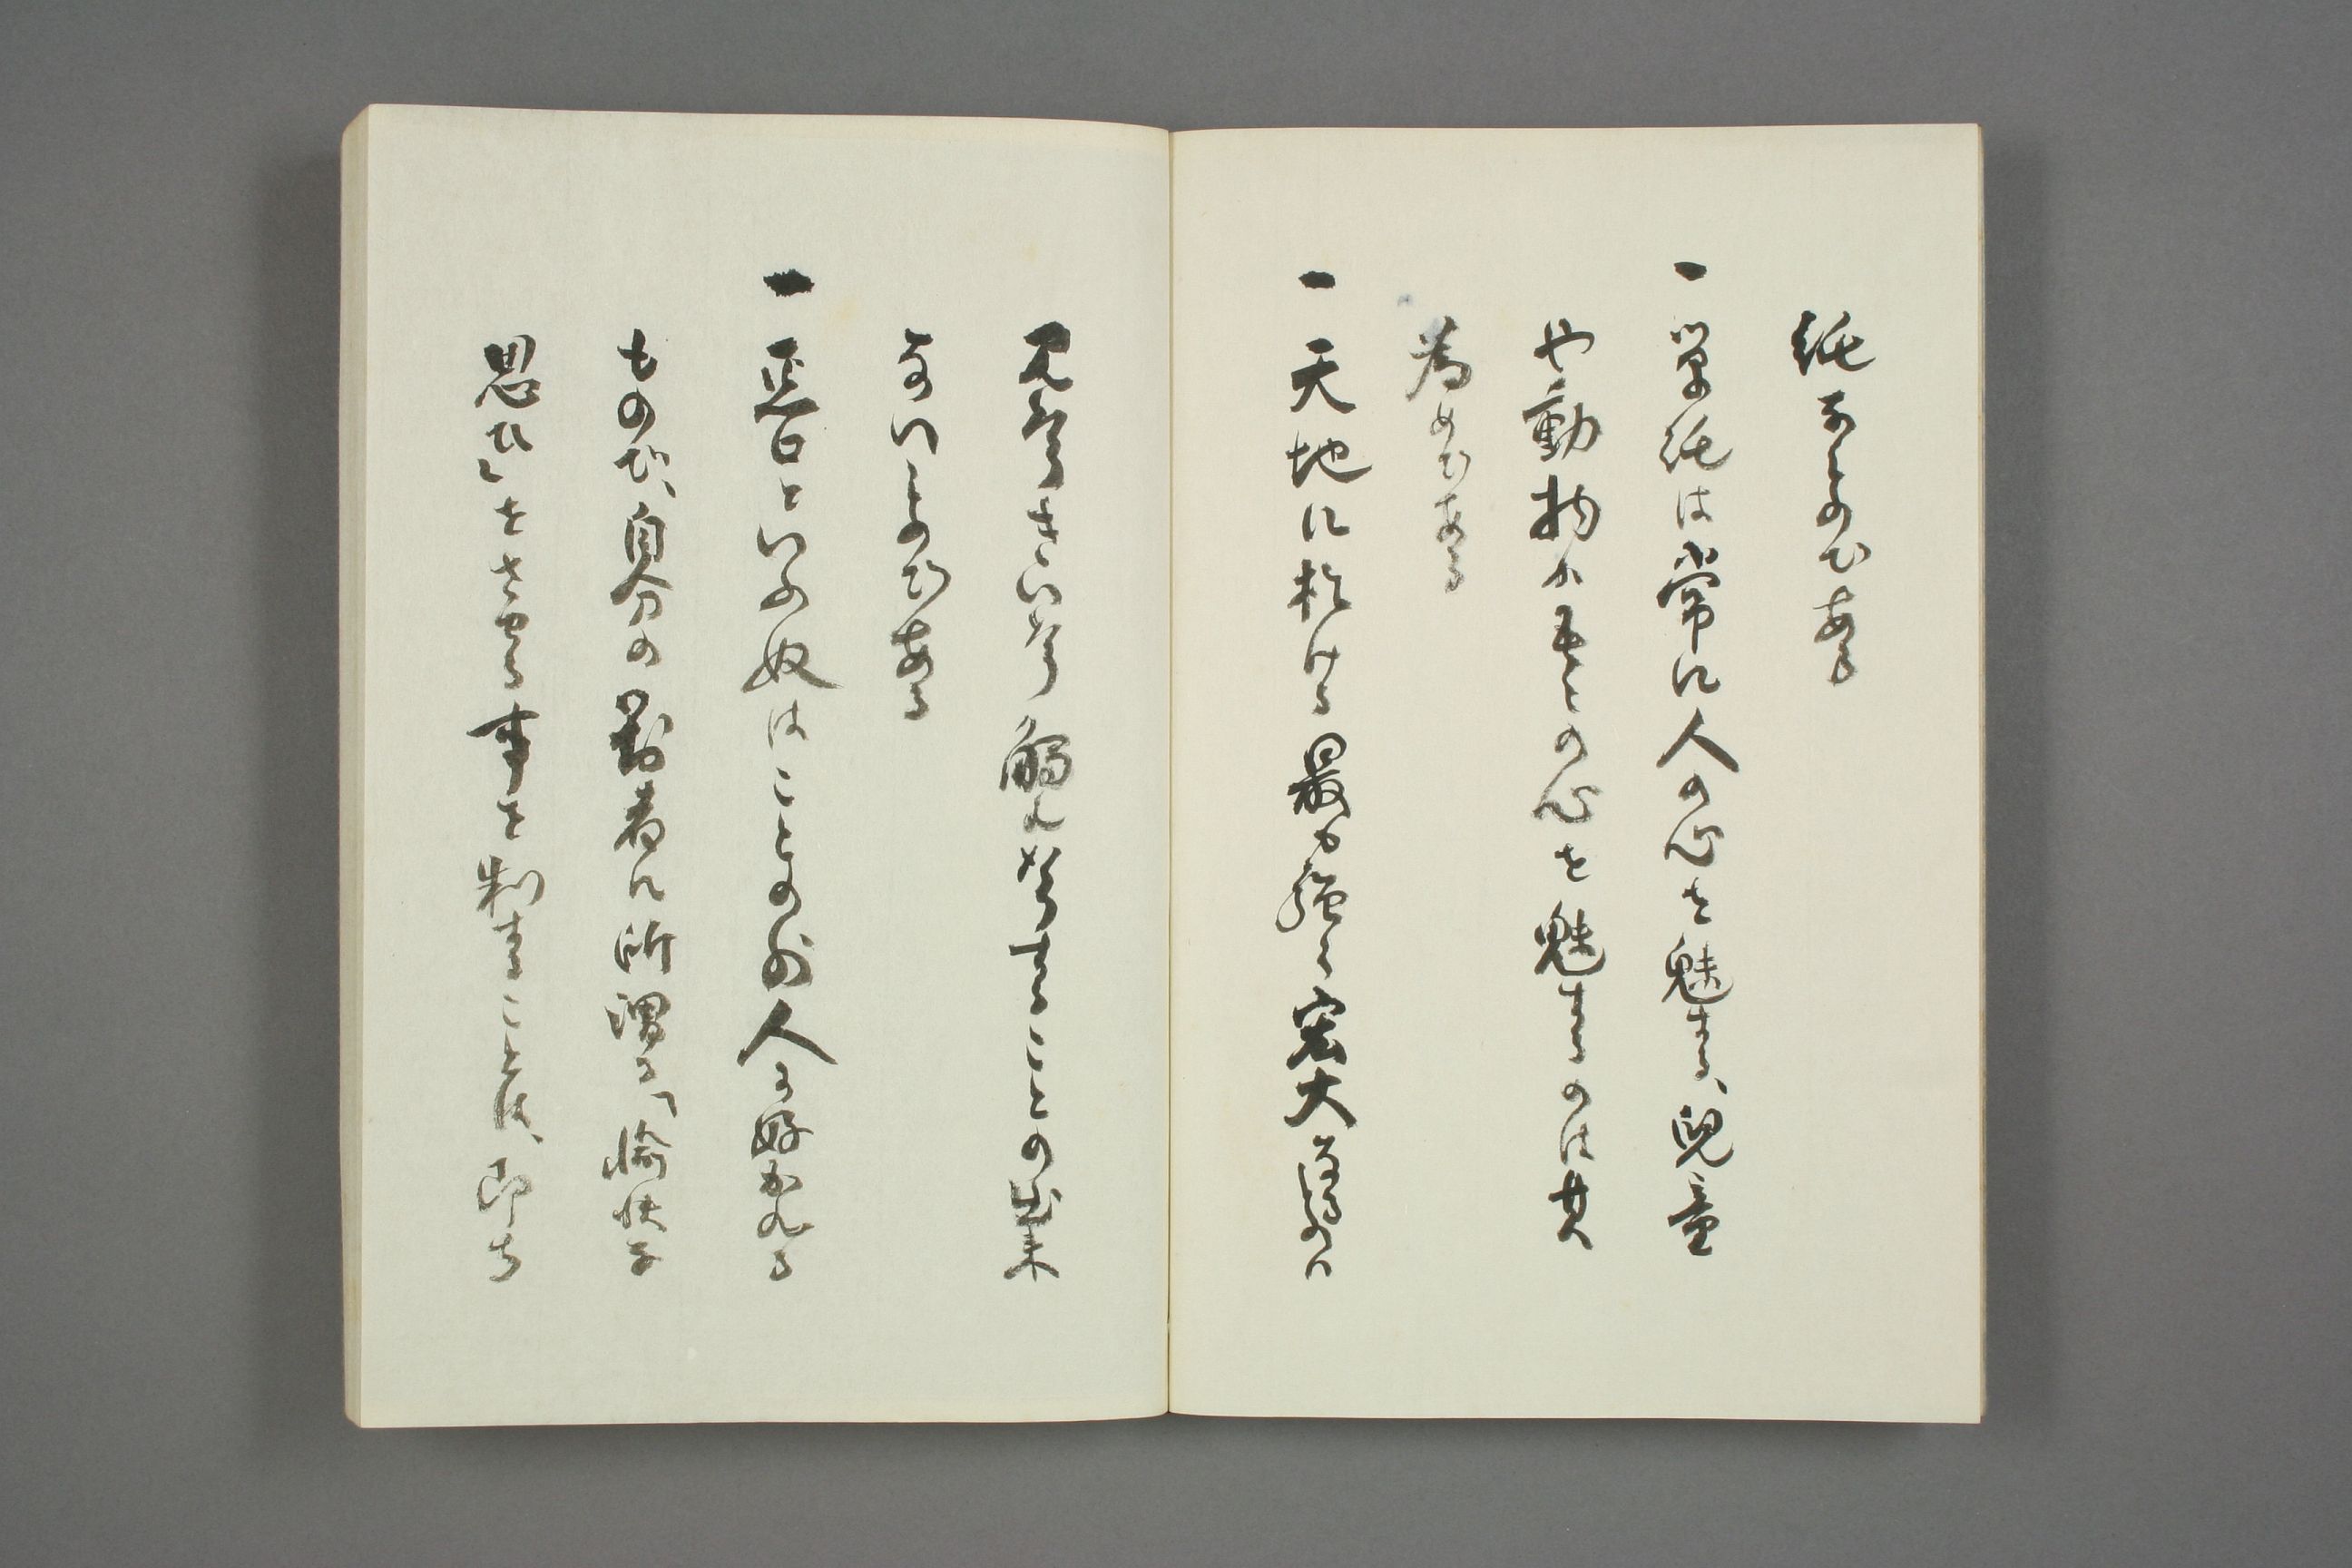 純なものである
一 單純は常に人の心を魅する、兒童
や動物が吾々の心を魅するのは其
為めである
一 天地に於ける最も強く宏大なるものは
見ることも觸れることの出来
ないものである
一 惡口といふ奴はことの外人に好かれる
もので、自分の對者に所謂る「愉快な
思ひ」をさせる事を制することは、即ち